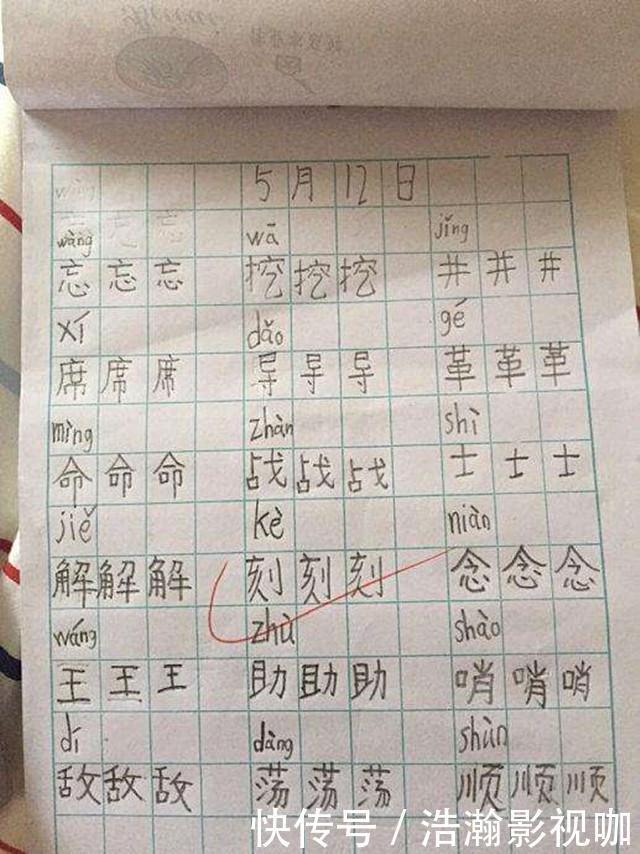 5月12日
wàng wā jǐng
忘忘忘 挖挖挖 井井井
xí dǎo gé
席席席 导导导 革革革
mìng zhàn shì
命命命 战战战 士士士
jiě kè niàn
解解解 刻刻刻 念念念
wáng zhù shào
王王王 助助助 哨哨哨
dí dàng shùn
敌敌敌 荡荡荡 顺顺顺
快传号 / 浩瀚影视咖